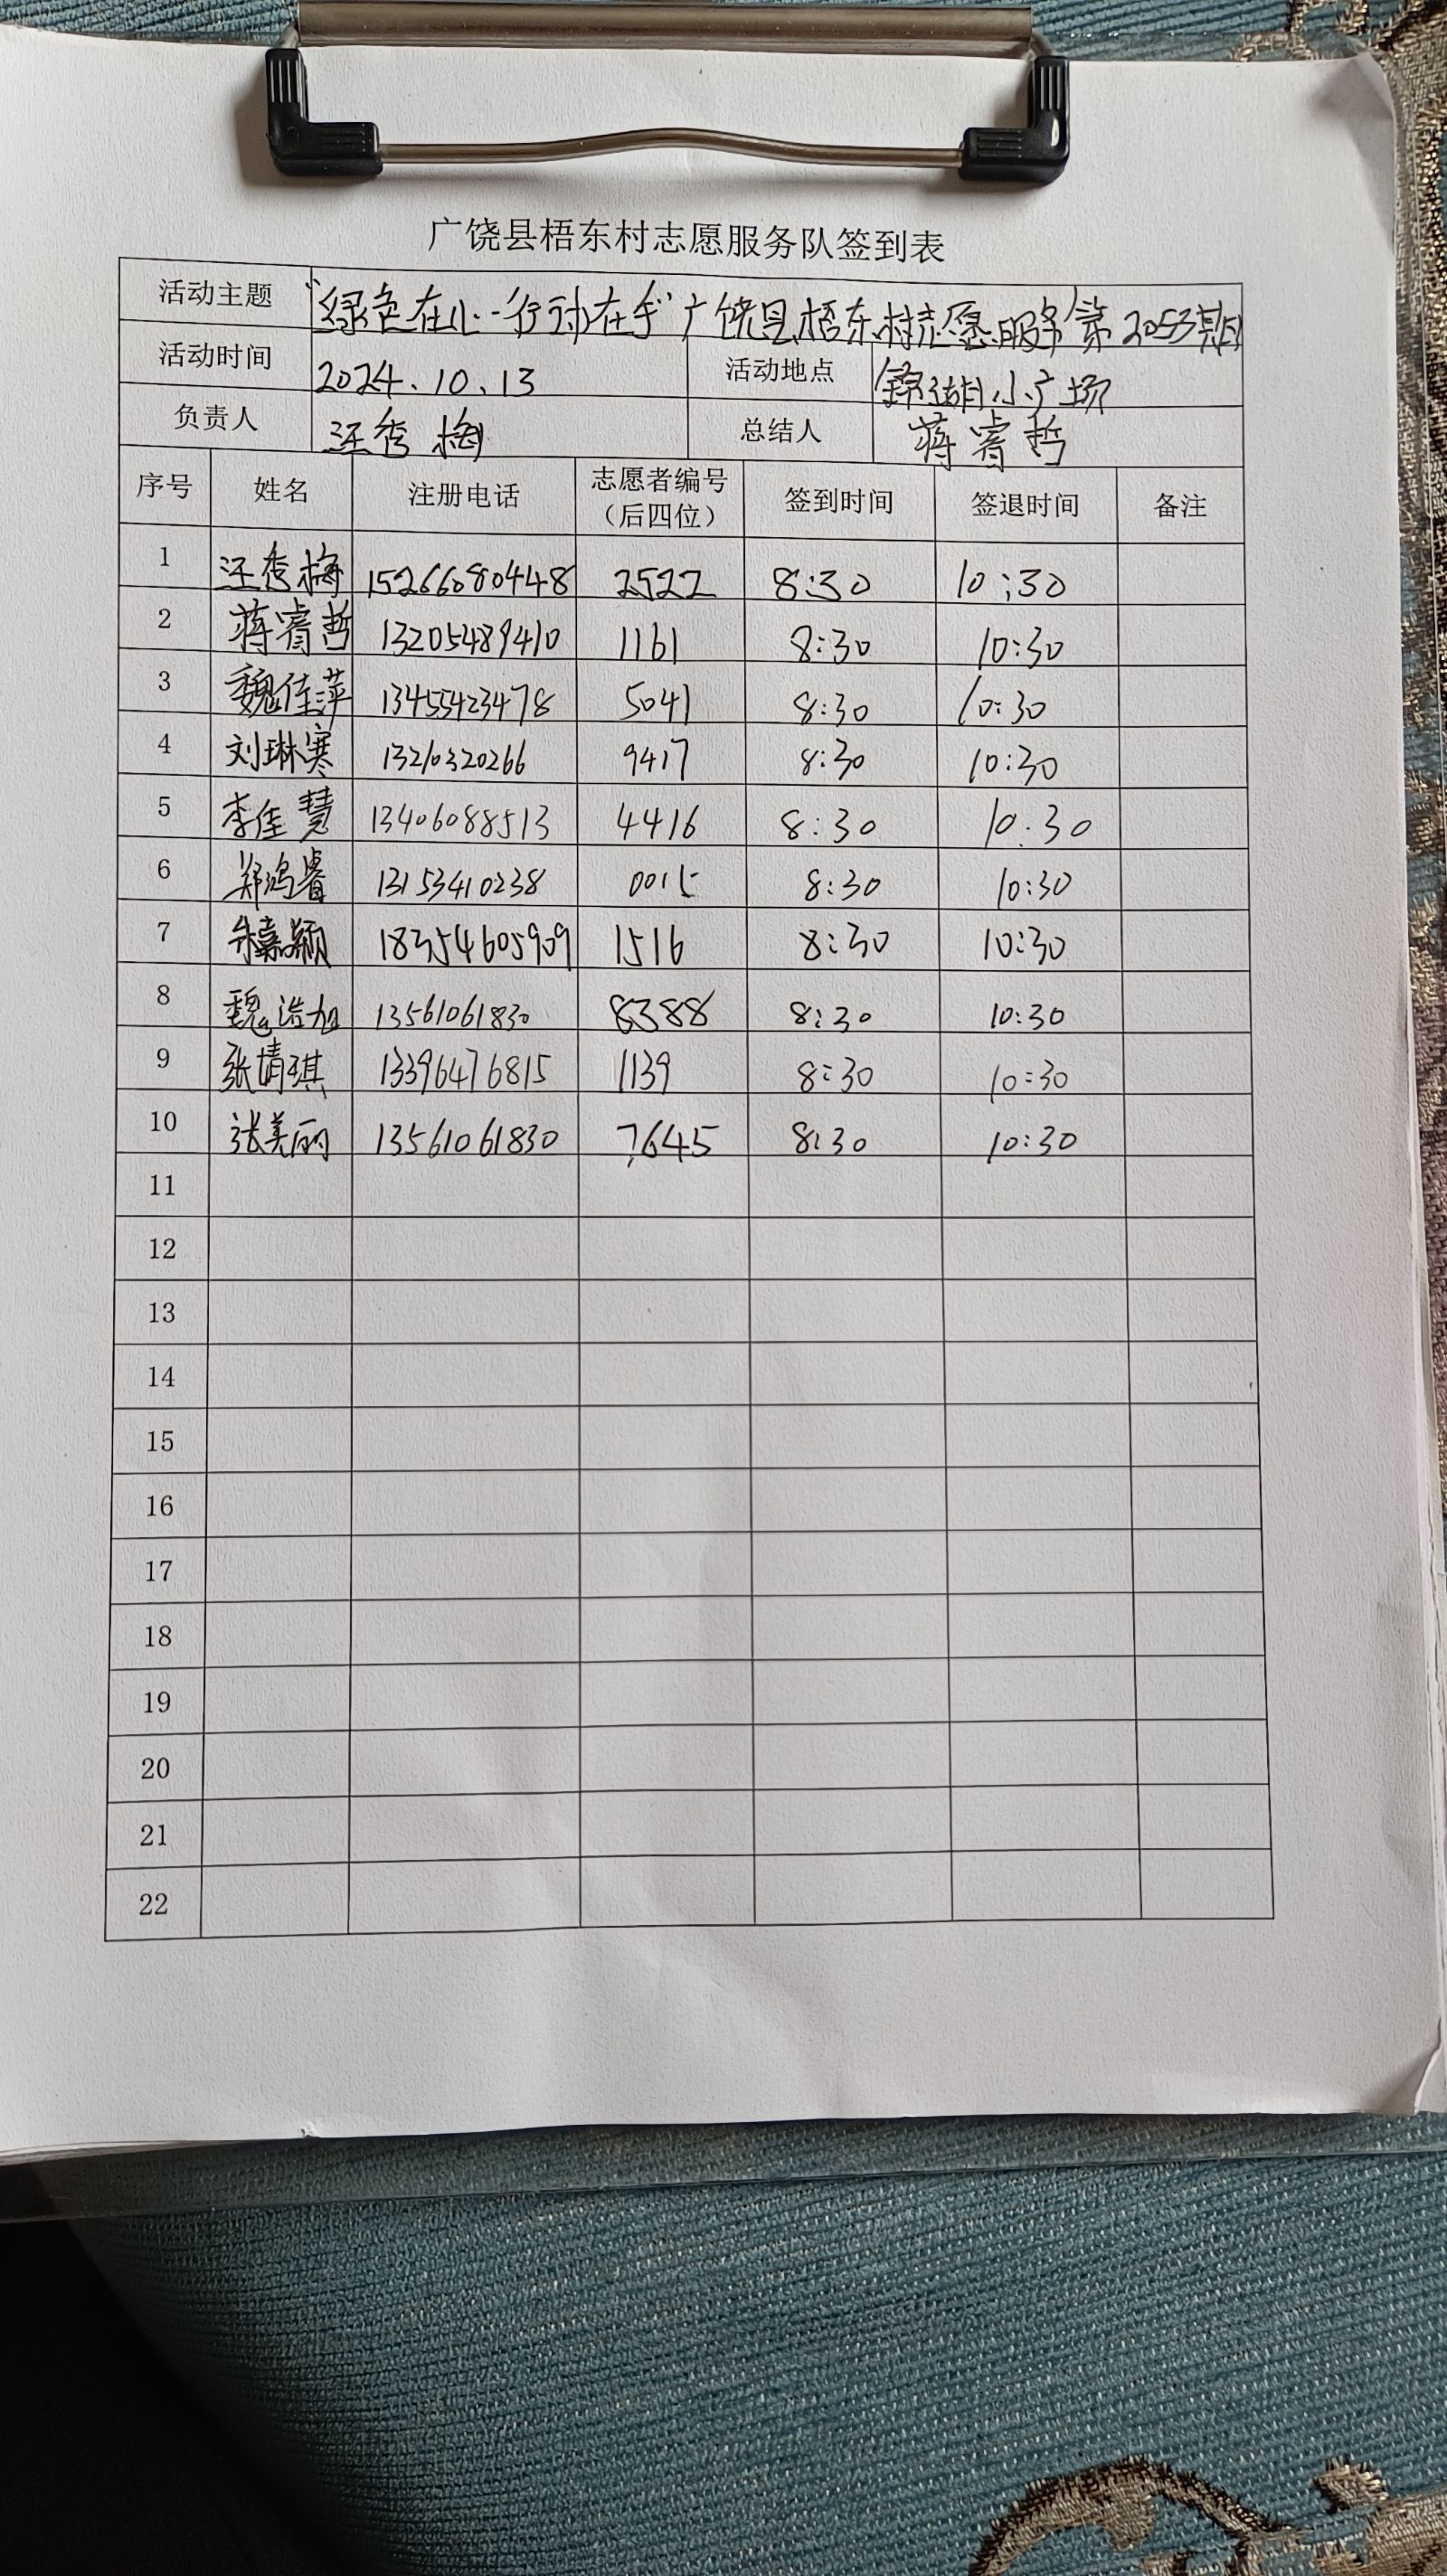 广饶县梧东村志愿服务队签到表
活动主题 “绿色在心·行动在手”广饶县梧东村志愿服务第2053期
活动时间 2024.10.13 活动地点 锦湖小广场
负责人 汪秀梅 总结人 蒋睿哲
序号 姓名 注册电话 志愿者编号（后四位） 签到时间 签退时间 备注
1 汪秀梅 15266080448 2522 8:30 10:30
2 蒋睿哲 13205489410 1161 8:30 10:30
3 魏佳萍 13455423478 5041 8:30 10:30
4 刘琳寒 13210320266 9417 8:30 10:30
5 李佳慧 13406088513 4416 8:30 10:30
6 郑鸿睿 13153410238 0015 8:30 10:30
7 朱嘉颖 18354605909 1516 8:30 10:30
8 魏浩旭 13561061830 8388 8:30 10:30
9 张婧琪 13396476815 1139 8:30 10:30
10 张美丽 13561061830 7645 8:30 10:30
11
12
13
14
15
16
17
18
19
20
21
22